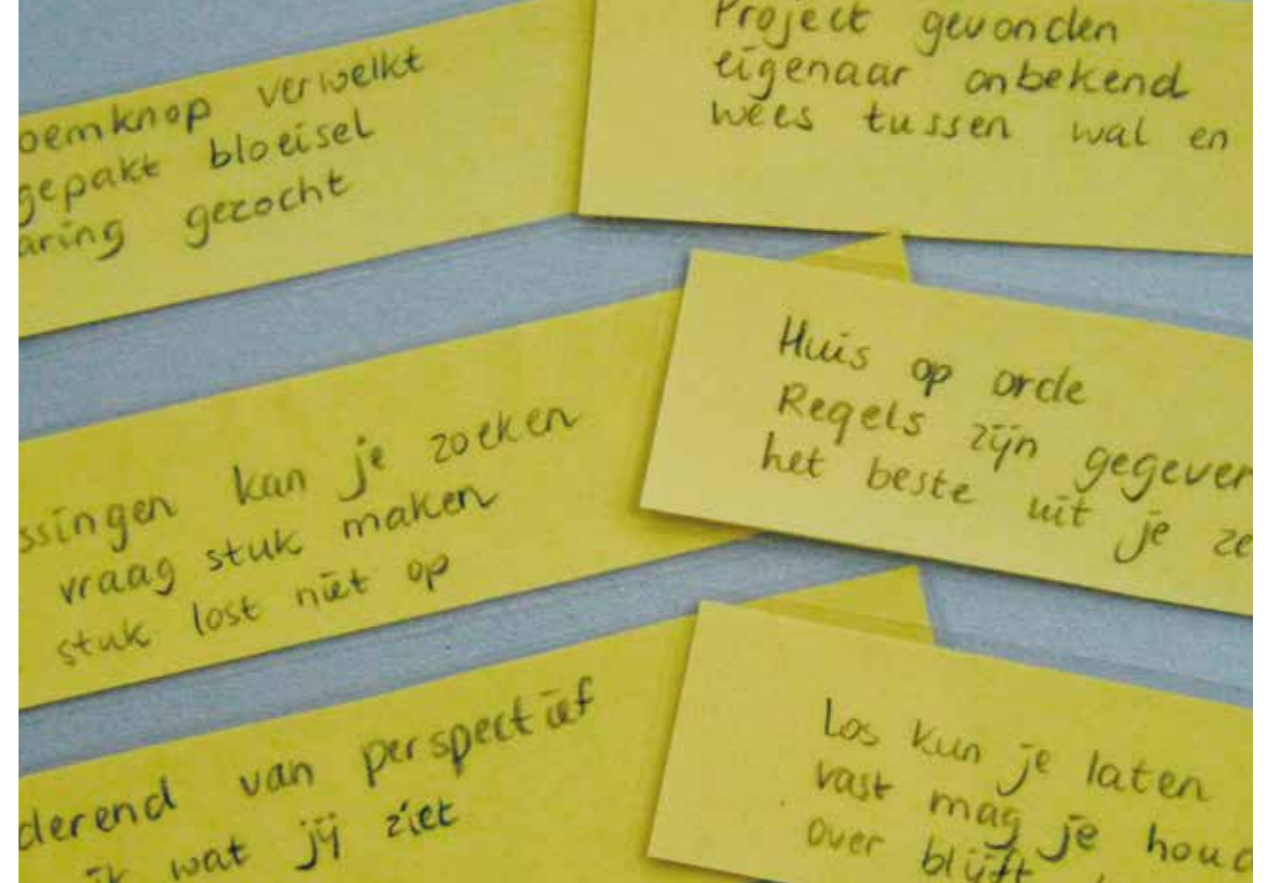 oemknop verwelkt
gepakt bloeisel
aring gezocht
Project gevonden
eigenaar onbekend
wees tussen wal en
ssingen kan je zoeken
vraag stuk maken
stuk lost niet op
Huis op orde
Regels zijn gegeven
het beste uit je ze
derend van perspectief
ik wat jij ziet
Los kun je laten
vast mag je houd
over blijft